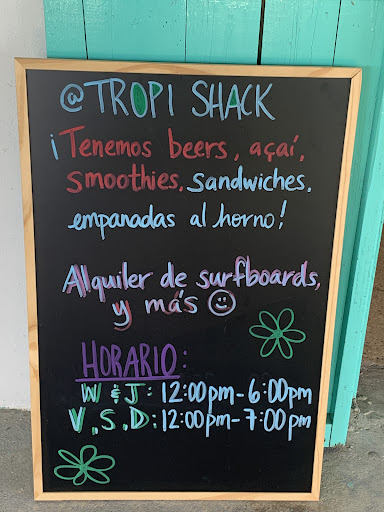 @TROPI SHACK
¡Tenemos beers, açaí,
smoothies, sandwiches,
empanadas al horno!
Alquiler de surfboards,
y más ☺
HORARIO:
W & J: 12:00pm-6:00pm
V,S,D: 12:00pm-7:00pm